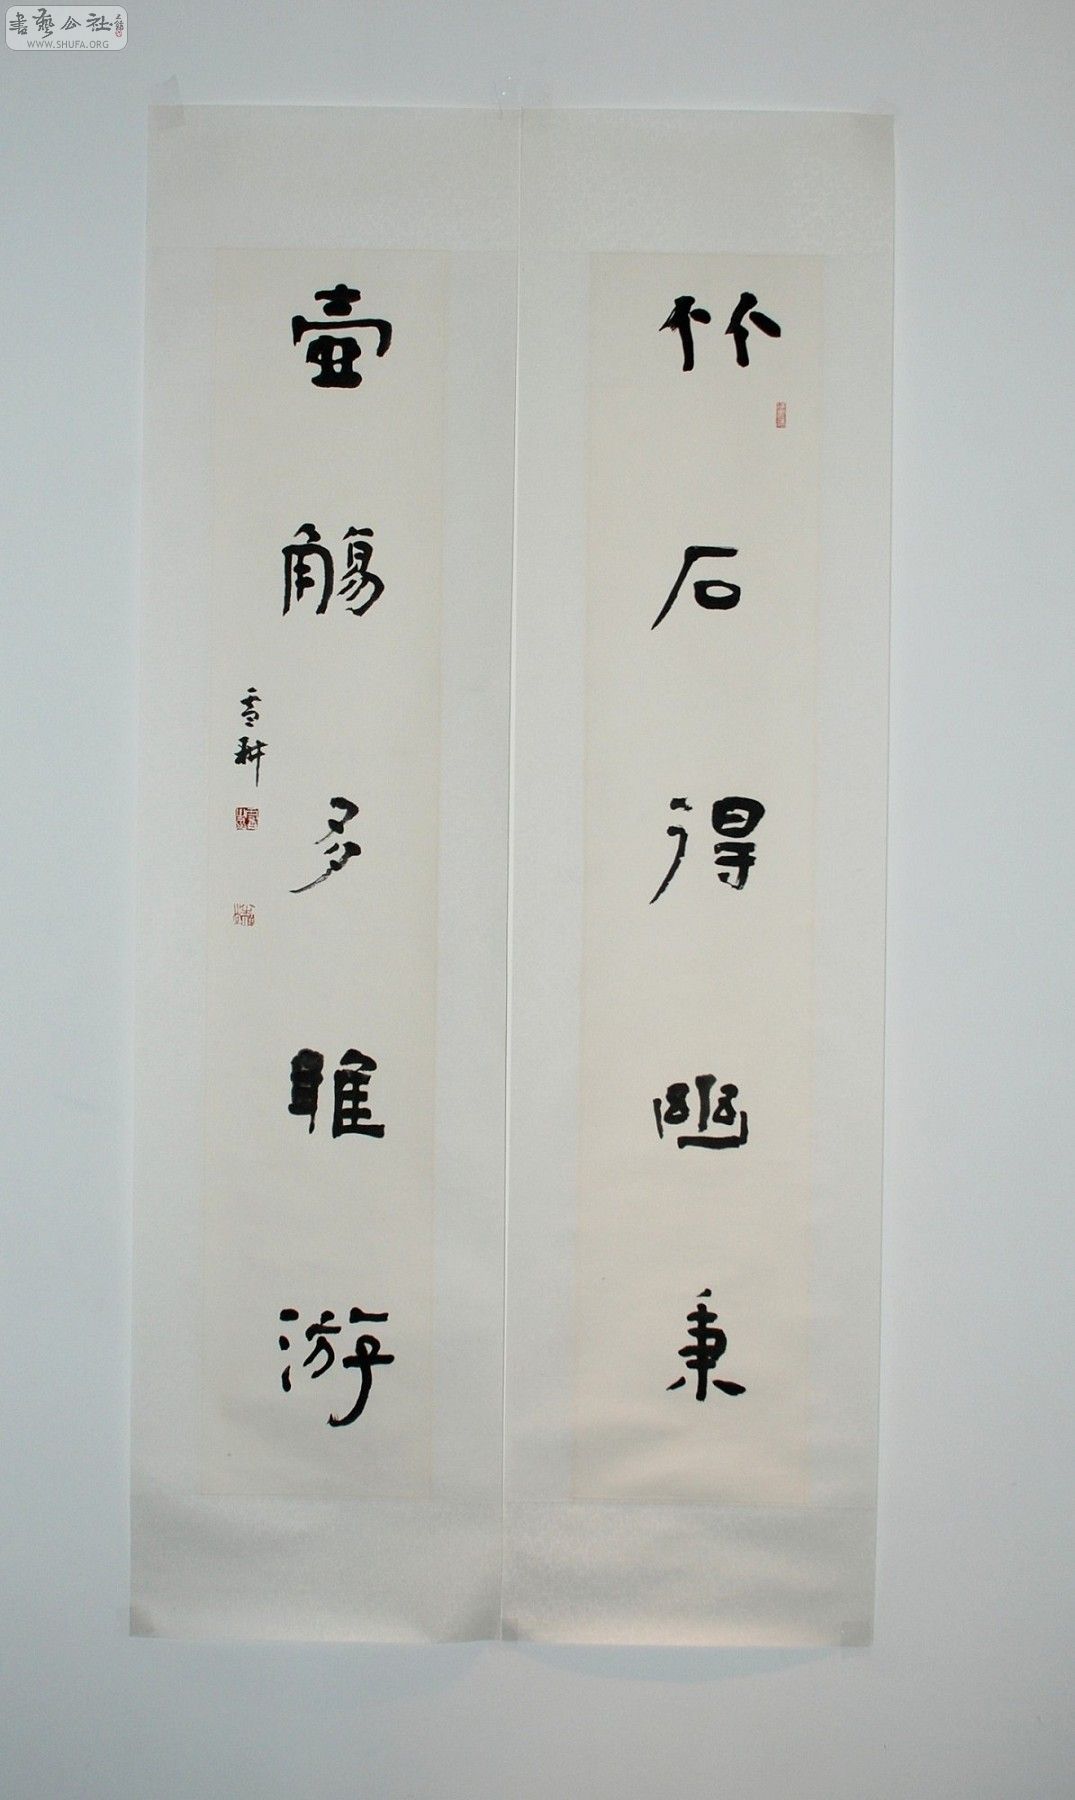 書藝公社
WWW.SHUFA.ORG
竹石得幽秉
壺觴多雅游
雪耕